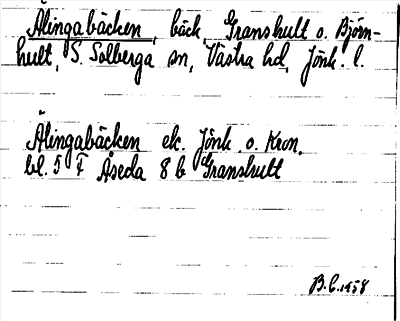 Älingabäcken, bäck, Granshult o. Björn-
hult, S. Solberga sn, Västra hd, Jönk. l.
Älingabäcken ek. Jönk. o. Kron.
bl. 5 F Åseda 8 b Granshult
B.L.1958